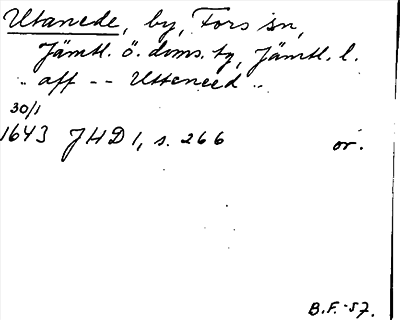 Utanede, by, Fors sn,
Jämtl. ö. doms. tg, Jämtl. l.
.. aff -- Utteneed ..
30/1
1643 JHD 1, s. 266 or.
B.F. -57.